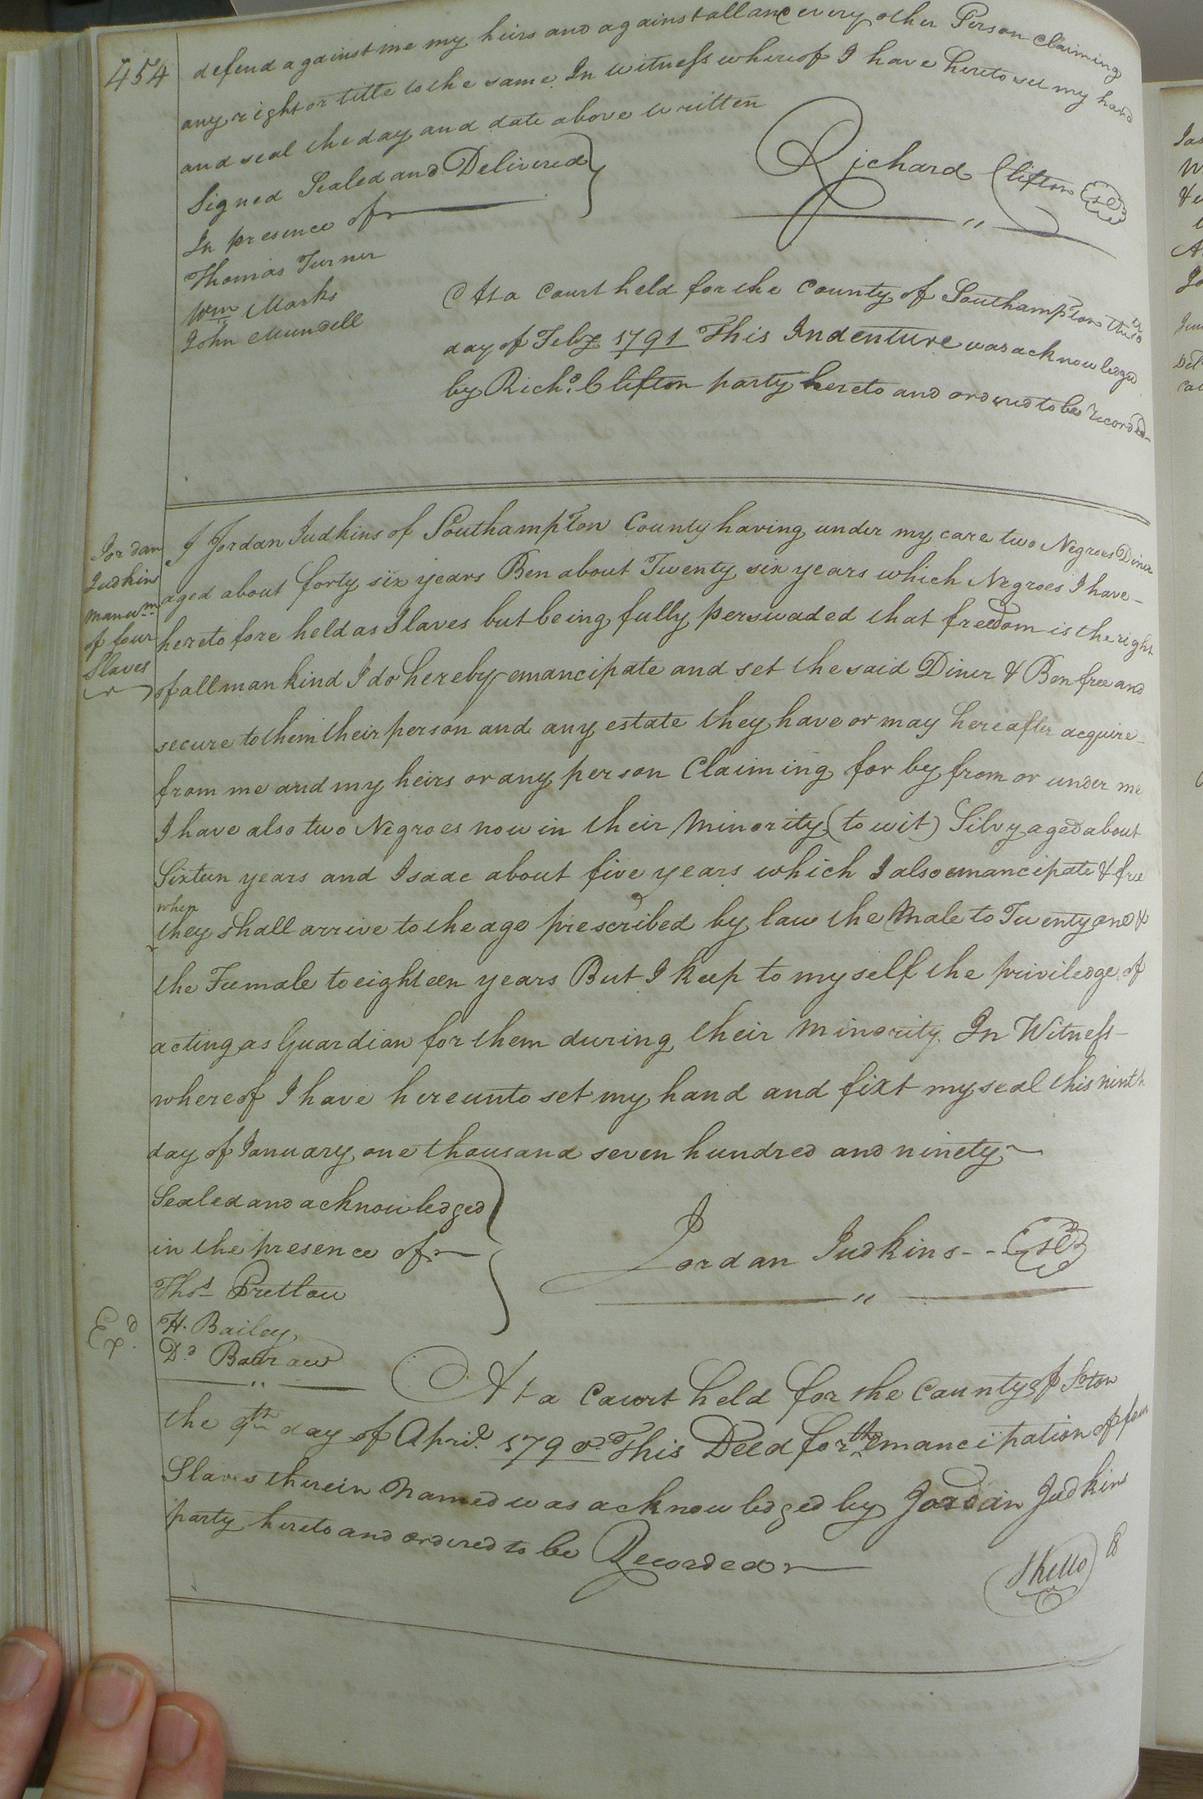 454
defend against me my heirs and against all and every other Person claiming
any right or title to the same. In witness whereof I have hereto set my hand
and seal the day and date above written
Signed Sealed and Delivered
In presence of
Thomas Turner
Wm Marks
John Mundell
Richard Clifton
At a Court held for the County of Southampton the
day of Feby 1791 This Indenture was acknowledged
by Richd. Clifton party hereto and ordered to be recorded
Jordan
Judkins
manum
of four
Slaves
I Jordan Judkins of Southampton County having under my care two Negroes Diner
aged about forty six years Ben about Twenty six years which Negroes I have
heretofore held as Slaves but being fully perswaded that freedom is the right
of all mankind I do hereby emancipate and set the said Diner & Ben free and
secure to them their person and any estate they have or may hereafter acquire
from me and my heirs or any person Claiming for by from or under me
I have also two Negroes now in their Minority (to wit) Silvy aged about
Sixteen years and Isaac about five years which I also emancipate & free
when
they shall arrive to the age prescribed by law the Male to Twenty one &
the Female to eighteen years But I keep to myself the priviledge of
acting as Guardian for them during their minority. In Witness
whereof I have hereunto set my hand and fixt my seal this ninth
day of January one thousand seven hundred and ninety
Sealed and acknowledged
in the presence of
Thos Prettow
H. Bailey
Dd Barraw
Jordan Judkins
Exd.
At a Court held for the County of Soton
the 9th day of April 1790. This Deed for the emancipation of four
Slaves therein Named was acknowledged by Jordan Judkins
party hereto and ordered to be Recorded